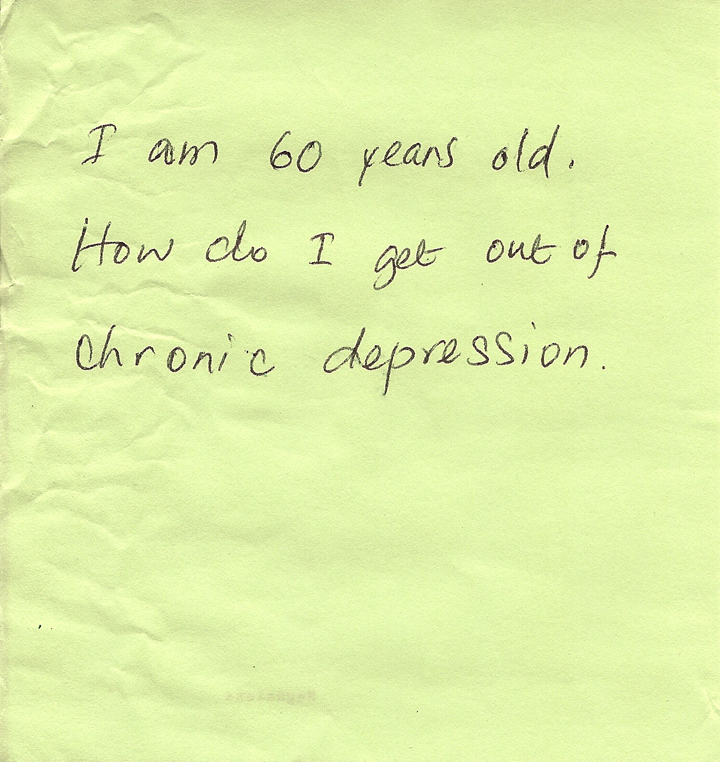 I am 60 years old.
How do I get out of
chronic depression.